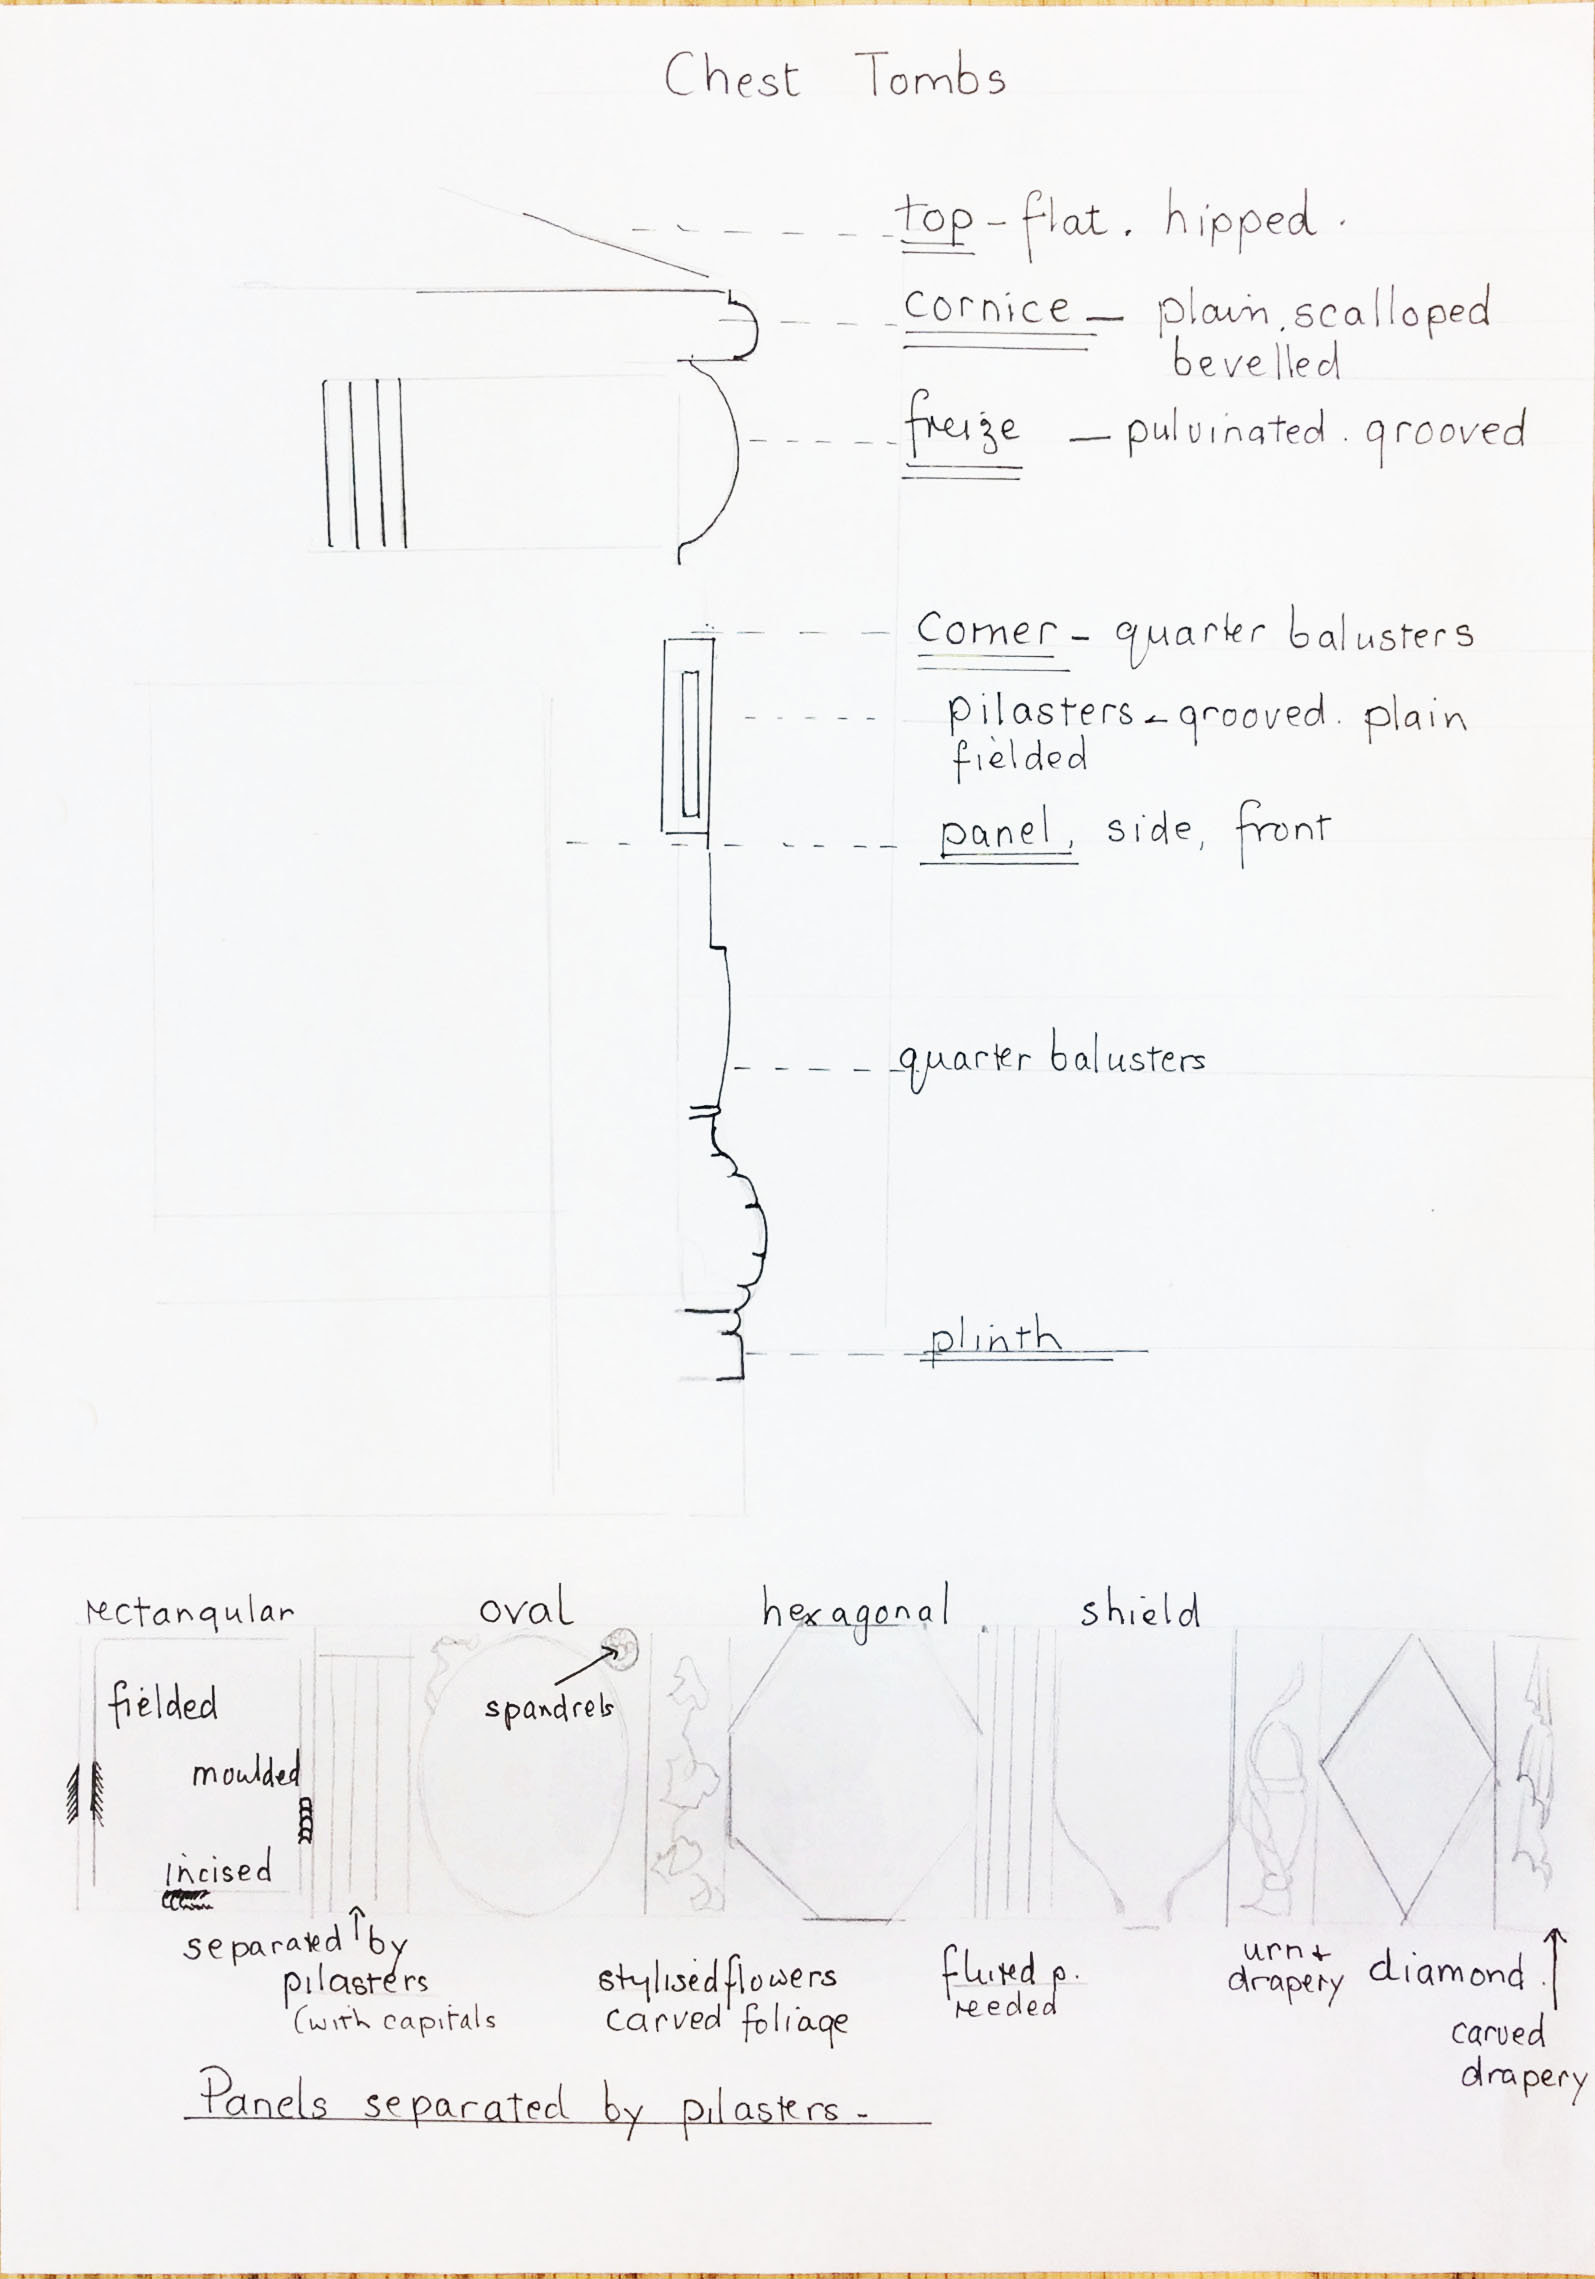 Chest Tombs
top - flat. hipped.
cornice - plain, scalloped
bevelled
freize - pulvinated. grooved
Corner - quarter balusters
pilasters - grooved. plain
fielded
panel, side, front
quarter balusters
plinth
rectangular oval hexagonal shield
fielded
spandrels
moulded
incised
separated by
pilasters
(with capitals
stylised flowers
carved foliage
fluted p.
reeded
urn +
drapery
diamond.
carved
drapery
Panels separated by pilasters -